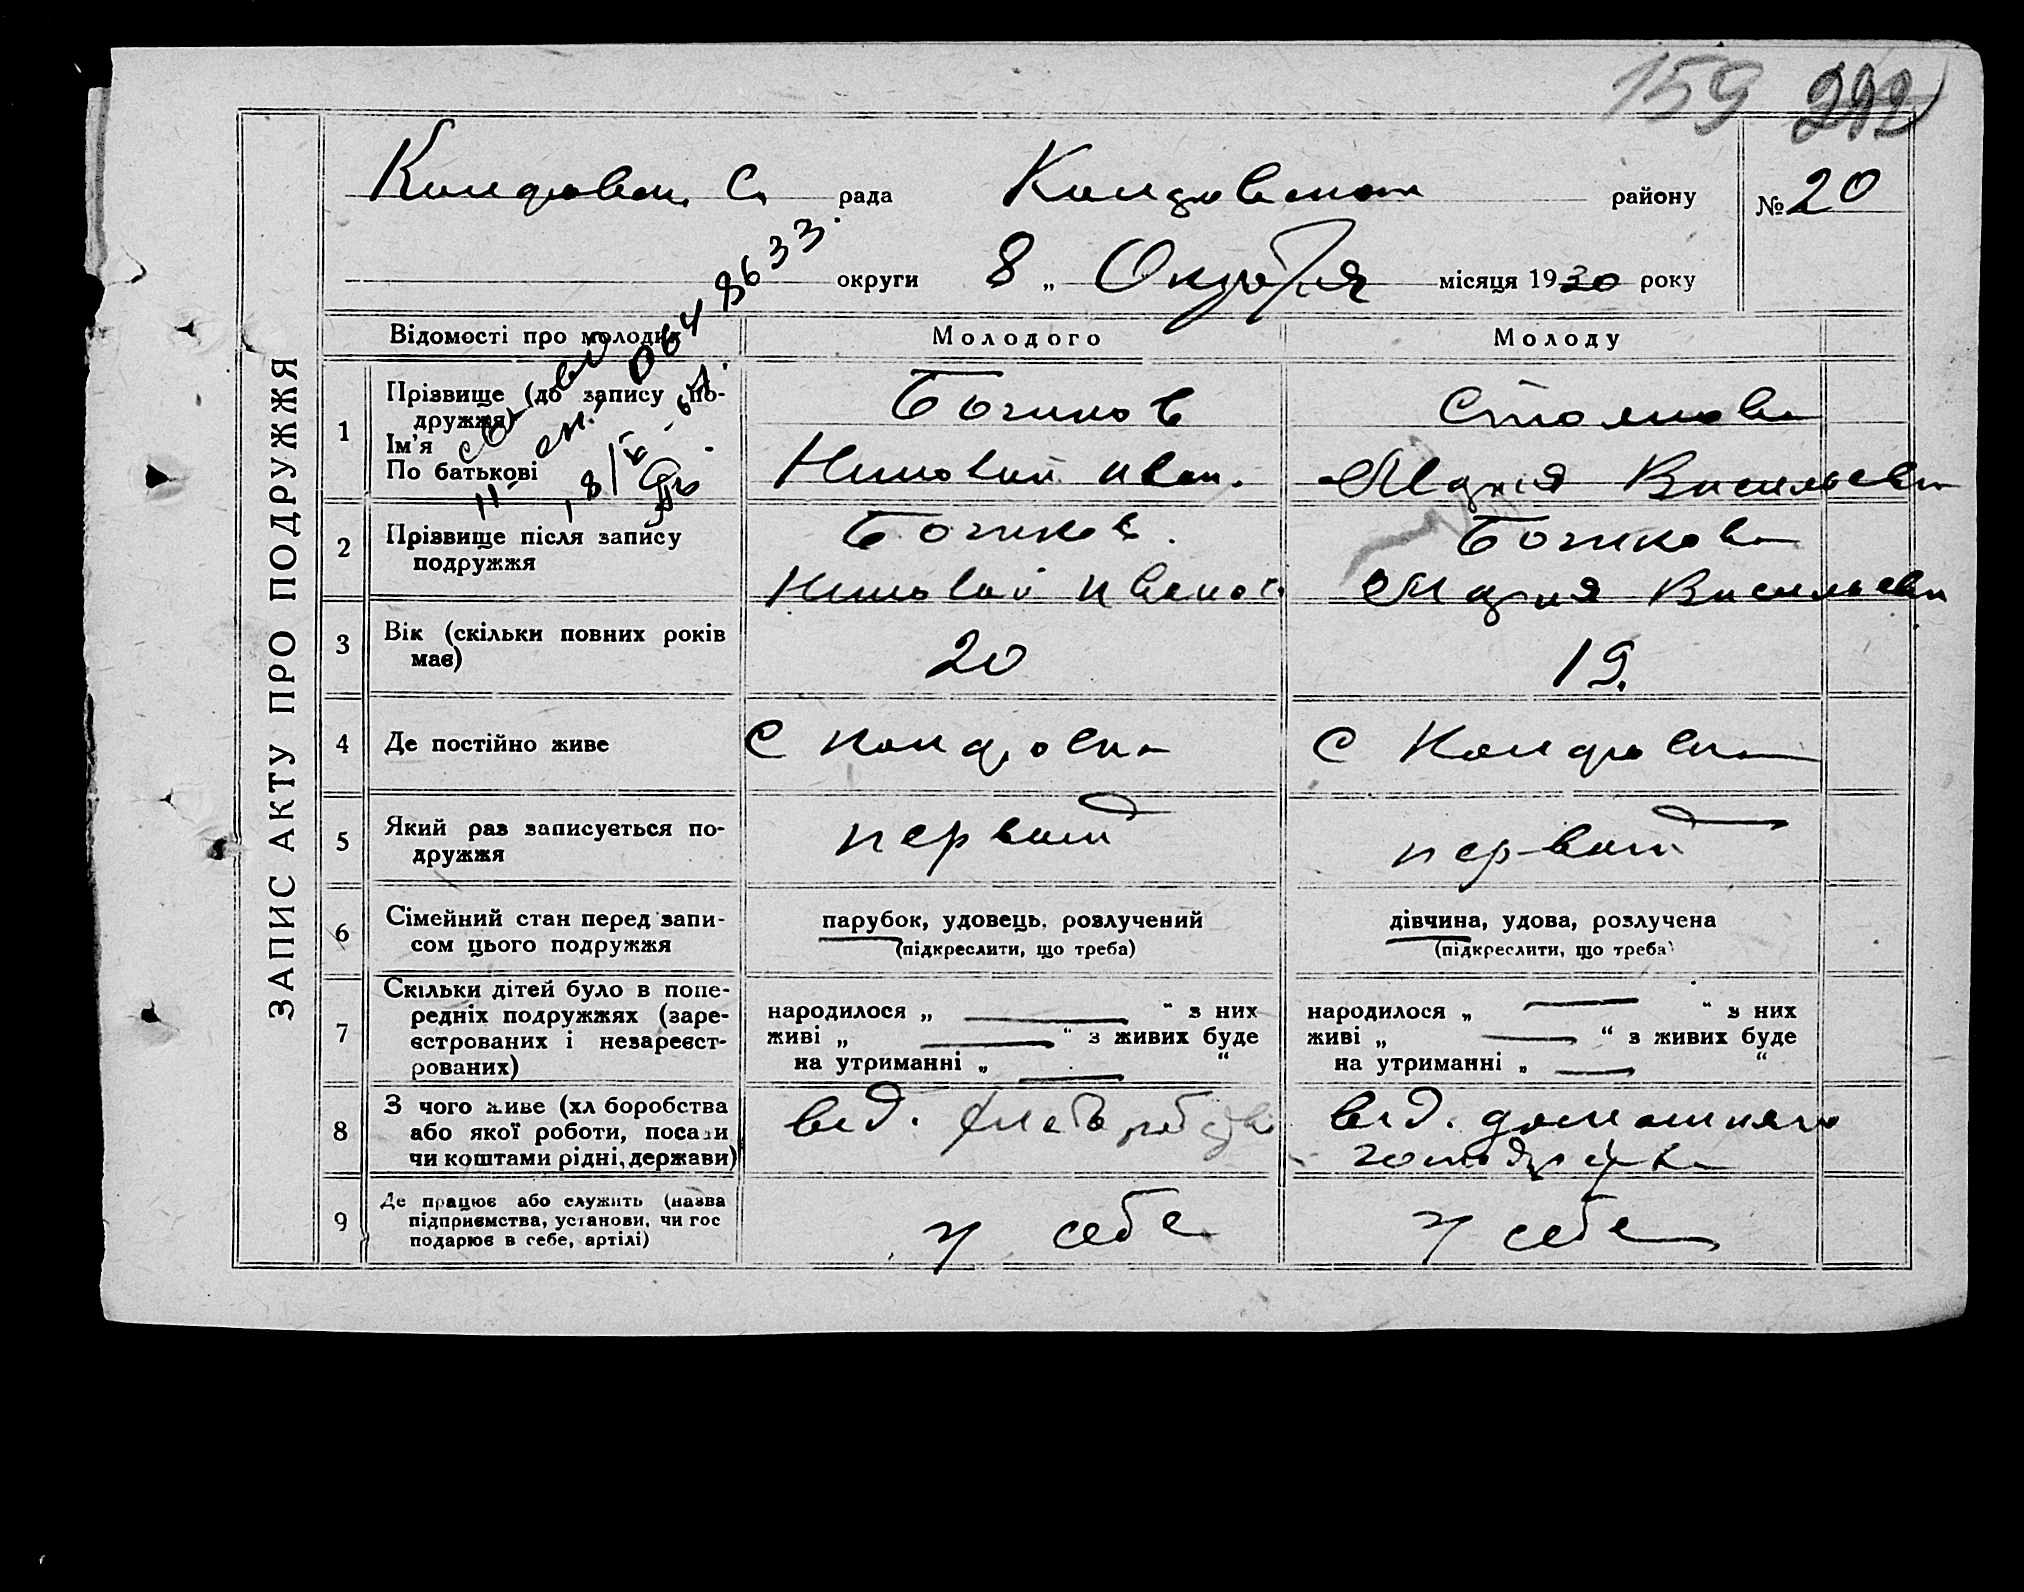 159 292
ЗАПИС АКТУ ПРО ПОДРУЖЖЯ
С. рада району № 20
округи 8 „ Октября місяця 1930 року
Відомості про молодих Молодого Молоду
1 Прізвище (до запису по-
дружжя)
Ім'я
По батькові
Стоянова
Николай Иван. Мария Васильевн
064 8633.
2 Прізвище після запису
подружжя
Николай Иванов. Мария Васильевн
3 Вік (скільки повних років
має)
20 19.
4 Де постійно живе
с с
5 Який раз записується по-
дружжя
первый первый
6 Сімейний стан перед запи-
сом цього подружжя
парубок, удовець, розлучений
(підкреслити, що треба)
дівчина, удова, розлучена
(підкреслити, що треба)
7 Скільки дітей було в попе-
редніх подружжях (заре-
єстрованих і незареєст-
рованих)
народилося „ “ з них
живі „ “ з живих буде
на утриманні „ “
народилося „ “ з них
живі „ “ з живих буде
на утриманні „ “
8 З чого живе (хл боробства
або якої роботи, посади
чи коштами рідні, держави)
вед. вед. домашняго
9 Де працює або служить (назва
підприємства, установи, чи гос
подарює в себе, артілі)
у себе у себе